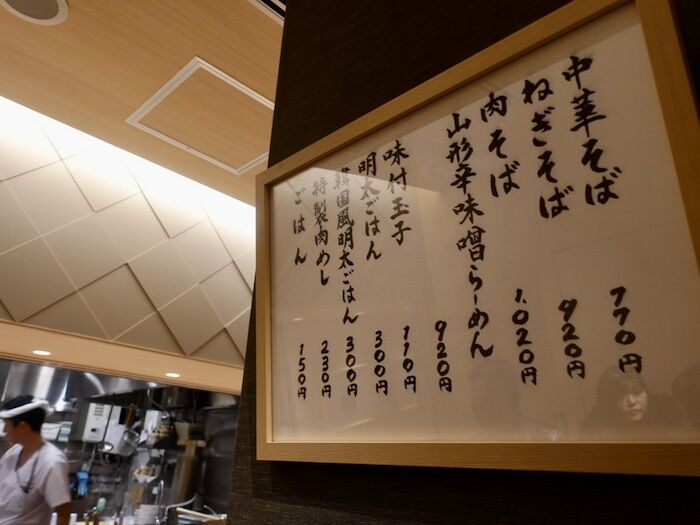 中華そば 770円
ねぎそば 920円
肉そば 1,020円
山形辛味噌らーめん 920円
味付玉子 110円
明太ごはん 300円
韓国風明太ごはん 300円
特製肉めし 230円
ごはん 150円